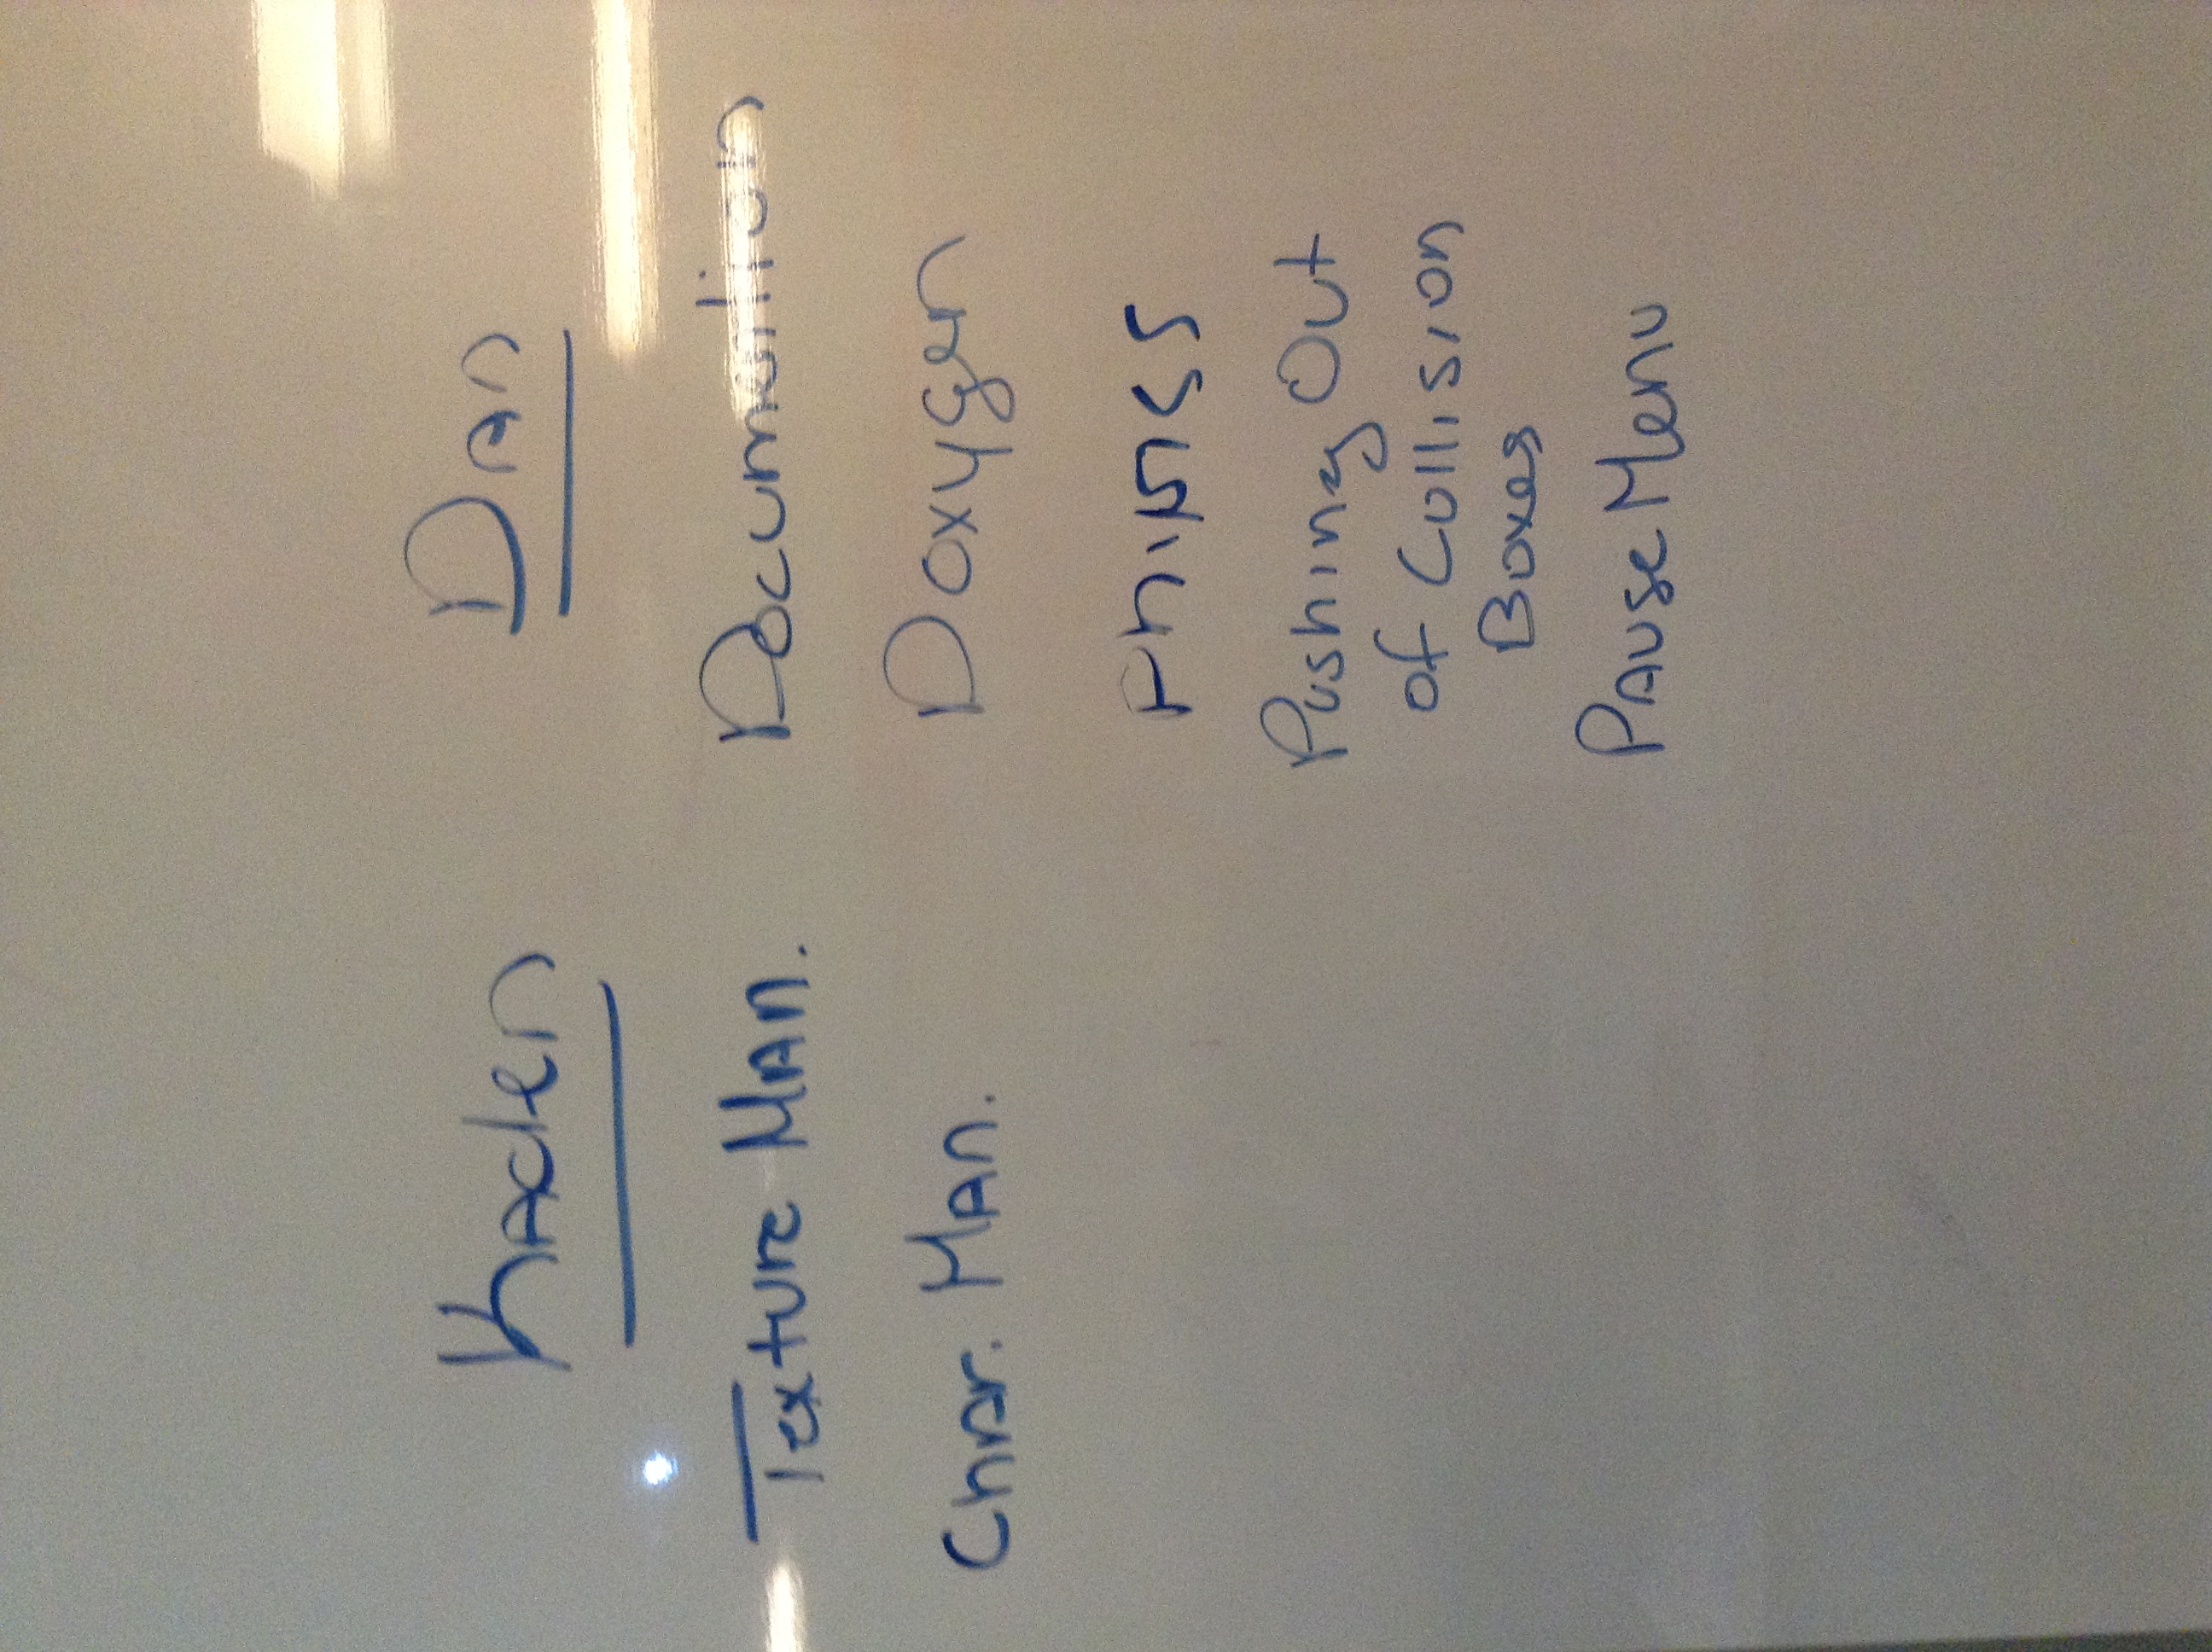 Kaden
Texture Man.
Char. Man.
Dan
Documention
Doxygen
Pushing Out
of Collision
Boxes
Pause Menu